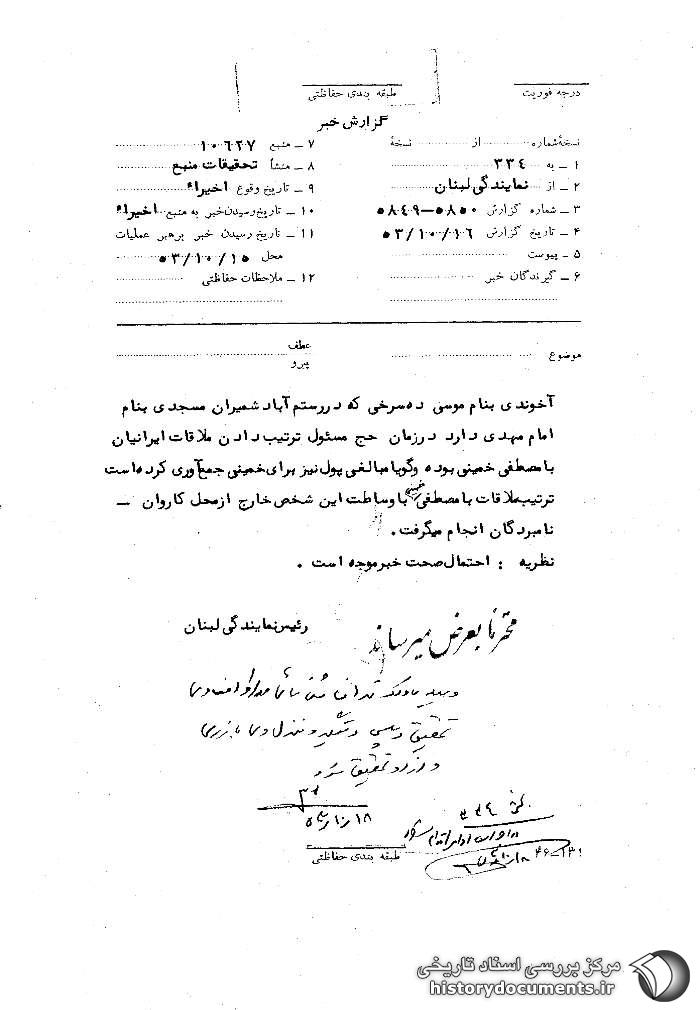 درجه فوریت
طبقه بندی حفاظتی
گزارش خبر
نسخهٔ شماره از نسخهٔ
۱ ـ به ۳۳٤
۲ ـ از نمایندگی لبنان
۳ ـ شماره گزارش ۵۸٤۹-۵۸۵۰
٤ ـ تاریخ گزارش ۵۳/۱۰/۱٦
۵ ـ پیوست
٦ ـ گیرندگان خبر
۷ ـ منبع ۱۰٦۲۷
۸ ـ منشأ تحقیقات منبع
۹ ـ تاریخ وقوع اخیراً
۱۰ ـ تاریخ رسیدن خبر به منبع اخیراً
۱۱ ـ تاریخ رسیدن خبر برهبر عملیات
محل ۵۳/۱۰/۱۵
۱۲ ـ ملاحظات حفاظتی
موضوع
عطف
پیرو
آخوندی بنام موسی ده‌سرخی که در رستم آباد شمیران مسجدی بنام
امام مهدی دارد در زمان حج مسئول ترتیب دادن ملاقات ایرانیان
با مصطفی خمینی بوده وگویا مبالغی پول نیز برای خمینی جمع‌آوری کرده است
ترتیب ملاقات با مصطفی خمینی با وساطت این شخص خارج از محل کاروان ـ
نامبردگان انجام میگرفت.
نظریه : احتمال صحت خبر موجه است .
رئیس نمایندگی لبنان
محترماً بعرض میرساند
تحقیق
و تحقیق شود
۱۸/۱۰/۵۳
بخش ۳۳٤
اقدام شود
طبقه بندی حفاظتی
مرکز بررسی اسناد تاریخی
historydocuments.ir